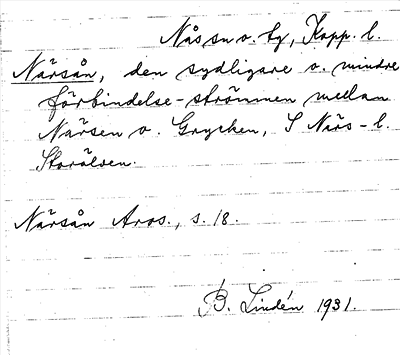 Nås sn o. tg, Kopp. l.
Närsån, den sydligare o. mindre
förbindelse-strömmen mellan
Närsen o. Grycken, S Närs- l.
Storälven.
Närsån Aros., s. 18.
B. Lindén 1931.